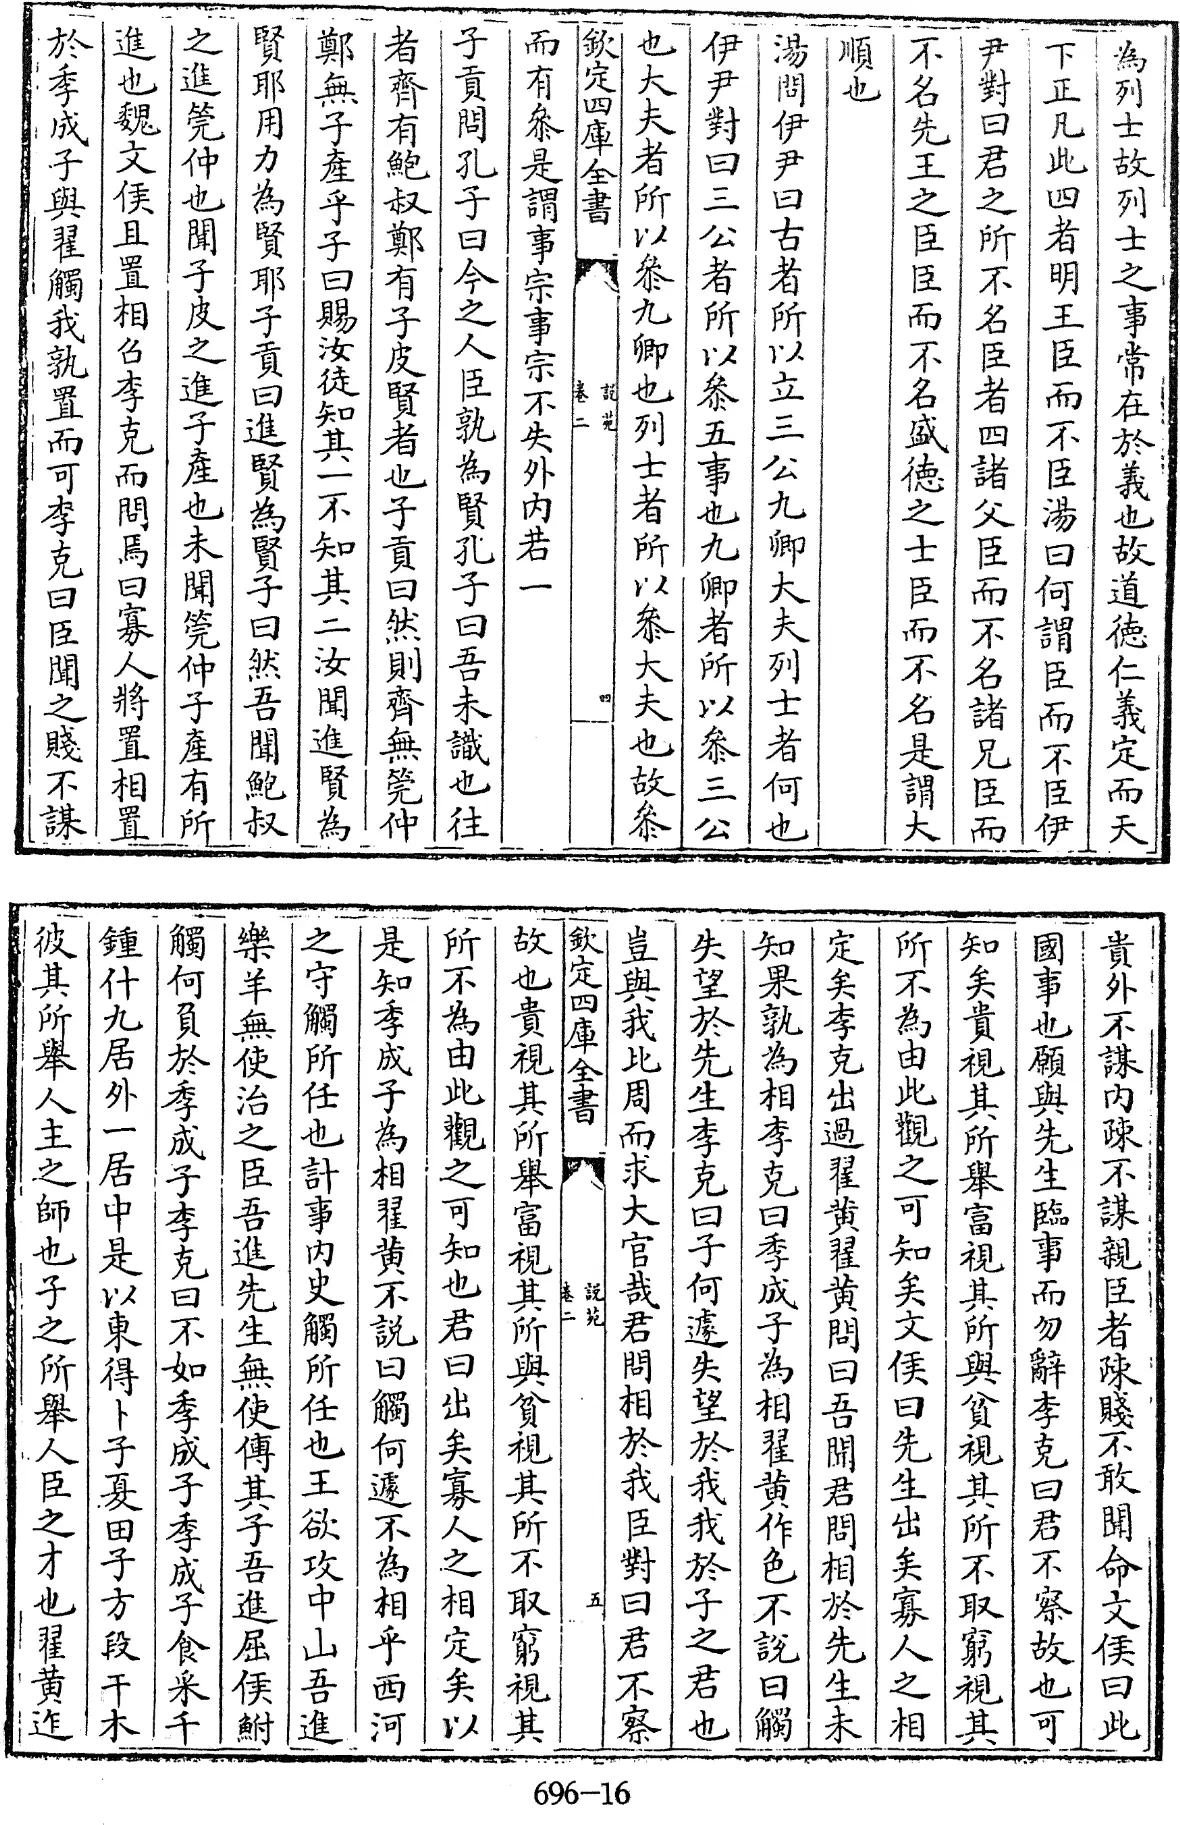 為列士故列士之事常在於義也故道徳仁義定而天
下正凡此四者明王臣而不臣湯曰何謂臣而不臣伊
尹對曰君之所不名臣者四諸父臣而不名諸兄臣而
不名先王之臣臣而不名盛徳之士臣而不名是謂大
順也
湯問伊尹曰古者所以立三公九卿大夫列士者何也
伊尹對曰三公者所以叅五事也九卿者所以叅三公
也大夫者所以叅九卿也列士者所以叅大夫也故叅
欽定四庫全書
説苑
卷二
四
而有叅是謂事宗事宗不失外内若一
子貢問孔子曰今之人臣孰為賢孔子曰吾未識也往
者齊有鮑叔鄭有子皮賢者也子貢曰然則齊無筦仲
鄭無子產乎子曰賜汝徒知其一不知其二汝聞進賢為
賢耶用力為賢耶子貢曰進賢為賢子曰然吾聞鮑叔
之進筦仲也聞子皮之進子產也未聞筦仲子產有所
進也魏文侯且置相召李克而問焉曰寡人將置相置
於季成子與翟觸我孰置而可李克曰臣聞之賤不謀
貴外不謀内疎不謀親臣者疎賤不敢聞命文侯曰此
國事也願與先生臨事而勿辭李克曰君不察故也可
知矣貴視其所舉富視其所與貧視其所不取窮視其
所不為由此觀之可知矣文侯曰先生出矣寡人之相
定矣李克出過翟黄翟黄問曰吾聞君問相於先生未
知果孰為相李克曰季成子為相翟黄作色不説曰觸
失望於先生李克曰子何遽失望於我我於子之君也
豈與我比周而求大官哉君問相於我臣對曰君不察
欽定四庫全書
説苑
卷二
五
故也貴視其所舉富視其所與貧視其所不取窮視其
所不為由此觀之可知也君曰出矣寡人之相定矣以
是知季成子為相翟黄不説曰觸何遽不為相乎西河
之守觸所任也計事内史觸所任也王欲攻中山吾進
樂羊無使治之臣吾進先生無使傅其子吾進屈侯鮒
觸何負於季成子李克曰不如季成子季成子食采千
鍾什九居外一居中是以東得卜子夏田子方段干木
彼其所舉人主之師也子之所舉人臣之才也翟黄迮
696-16